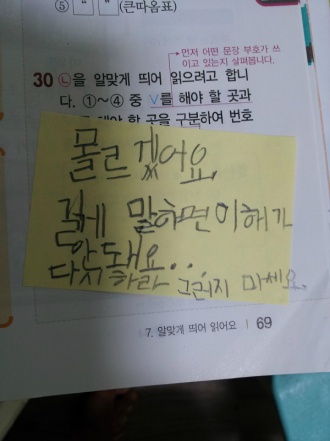 ⑤ “ ” (큰따옴표)
먼저 어떤 문장 부호가 쓰
이고 있는지 살펴봅니다.
30 ㉡을 알맞게 띄어 읽으려고 합니
다. ①~④ 중 ∨를 해야 할 곳과
해야 할 곳을 구분하여 번호
몰르겠어요
길게 말하면 이해가
안돼요..
다시 하라 그러지 마세요.
7. 알맞게 띄어 읽어요 69